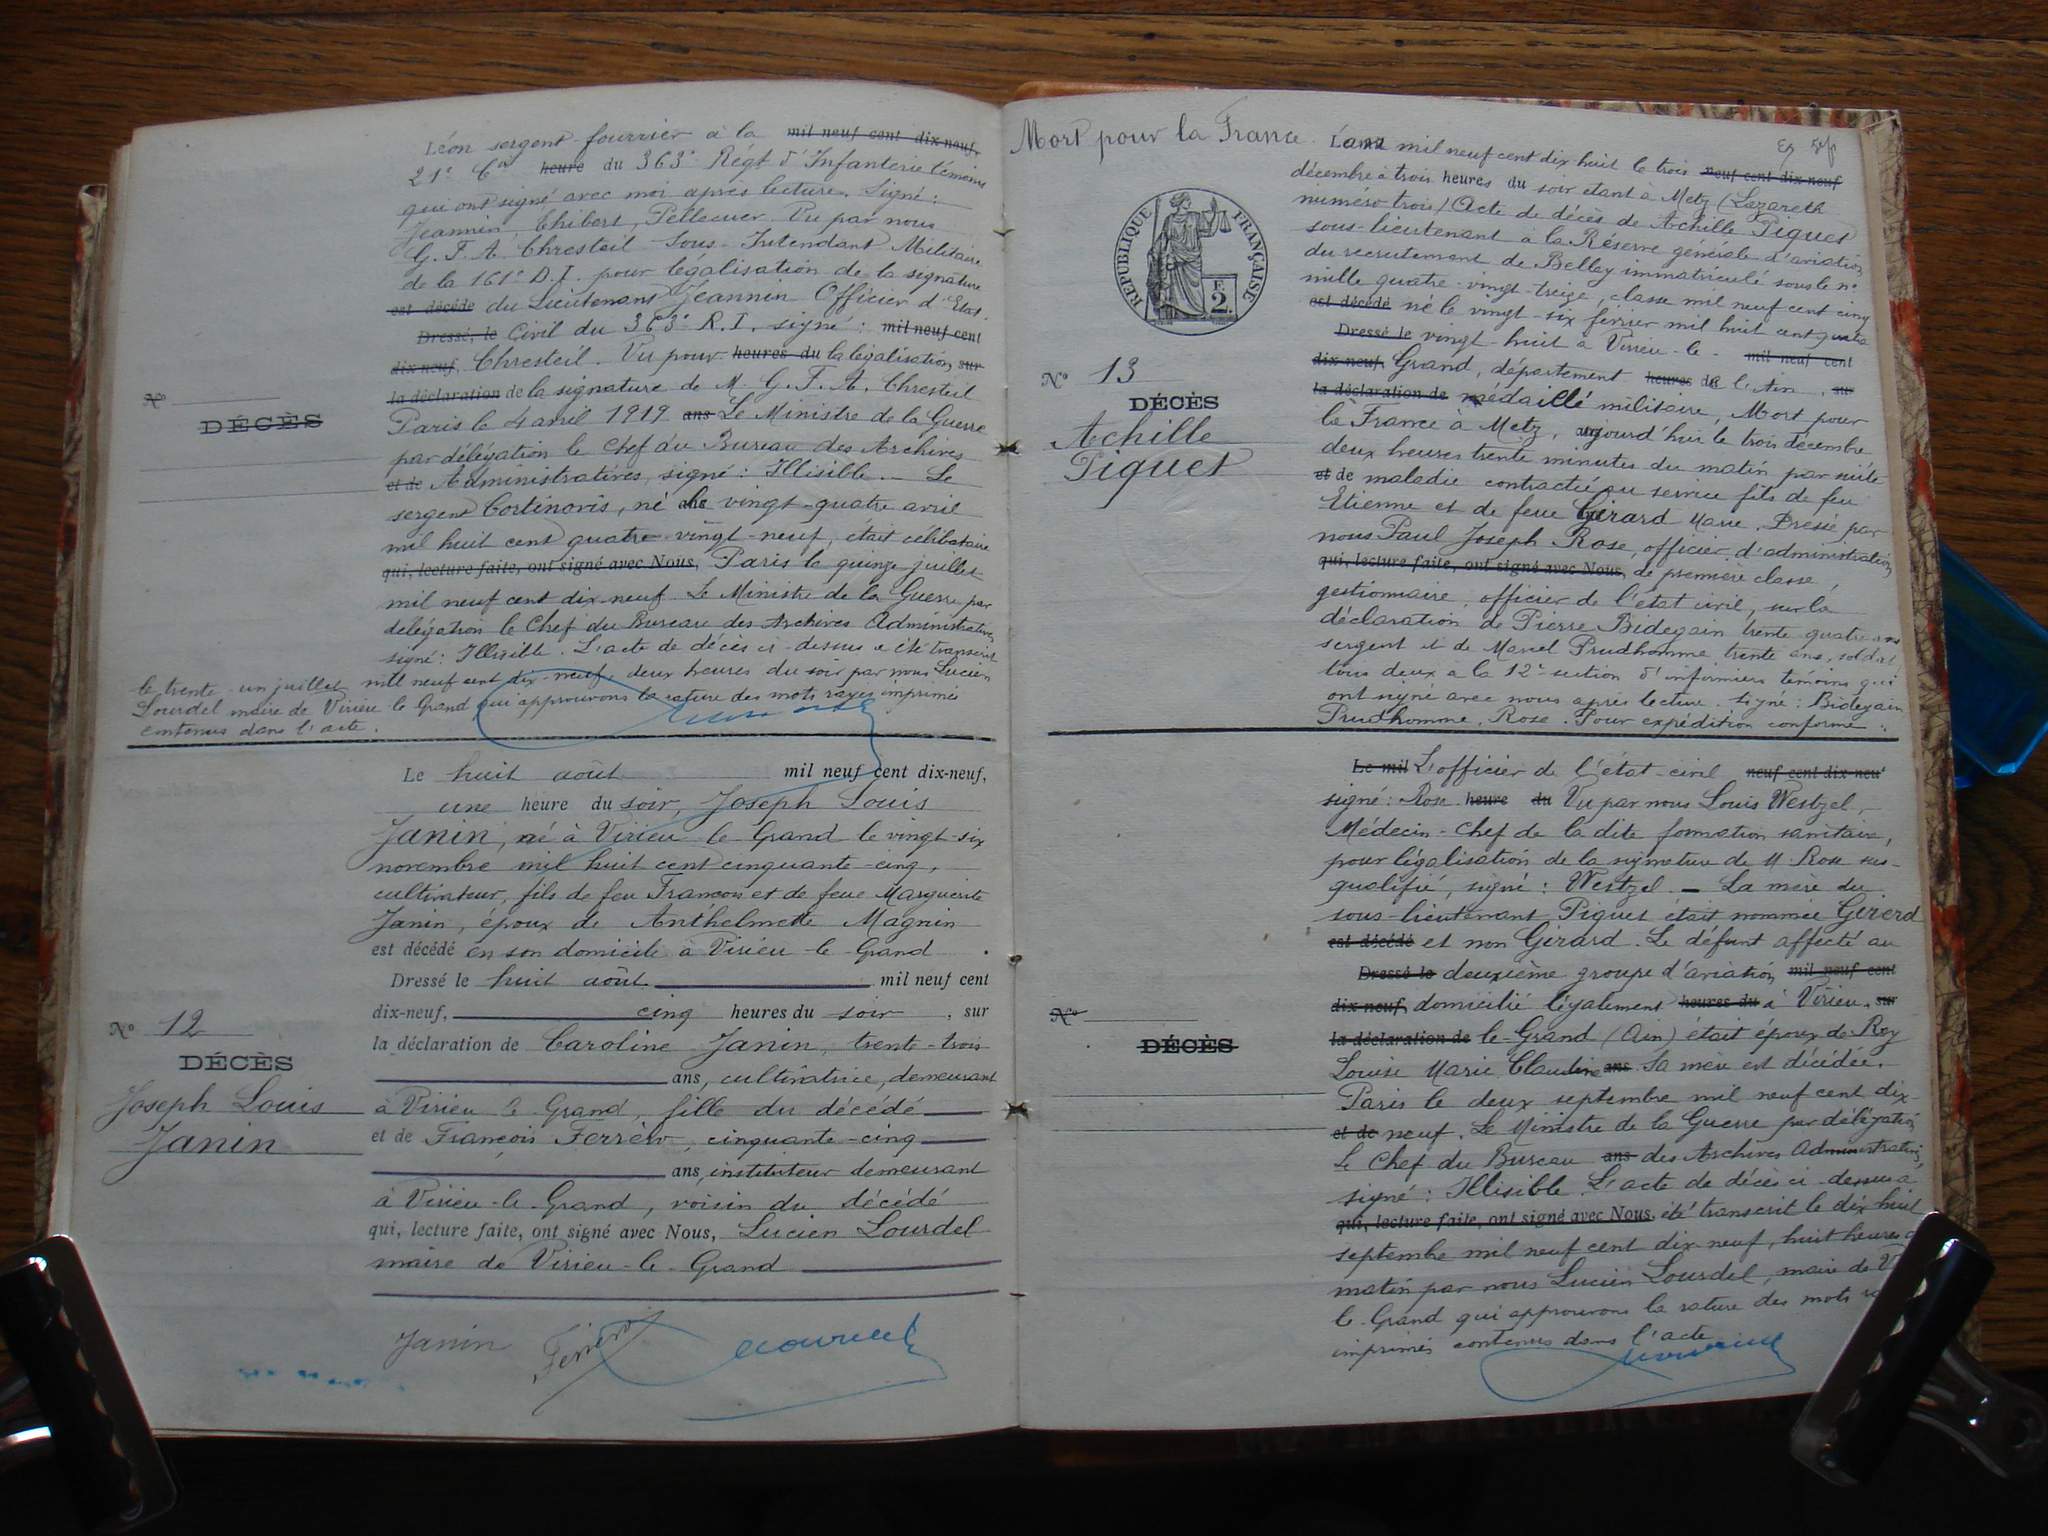 Léon sergent fourrier à la mil neuf cent dix-neuf,
21e Cie heure du 363e Régt d'Infanterie témoins
qui ont signé avec moi après lecture. Signé :
Jeannin, Thibert, Pellecuer. Vu par nous
G. F. A. Chresteil Sous-Intendant Militaire
de la 161e D.I. pour légalisation de la signature
est décédé du Lieutenant Jeannin Officier d'Etat
Dressé, le Civil du 363e R.I. signé : mil neuf cent
dix-neuf, Chresteil. Vu pour heures du la légalisation, sur
la déclaration de la signature de M. G. F. A. Chresteil
Paris le 4 avril 1919 ans Le Ministre de la Guerre
par délégation le Chef du Bureau des Archives
et de Administratives, signé : Illisible. — Le
sergent Cortinovis, né ans le vingt-quatre avril
mil huit cent quatre-vingt-neuf, était célibataire
qui, lecture faite, ont signé avec Nous, Paris le quinze juillet
mil neuf cent dix-neuf. Le Ministre de la Guerre par
délégation le Chef du Bureau des Archives Administratives
signé : Illisible. L'acte de décès ci-dessus a été transcrit
le trente-un juillet mil neuf cent dix-neuf, deux heures du soir par nous Lucien
Lourdel maire de Virieu le Grand qui approuvons la rature des mots rayés imprimés
contenus dans l'acte.
No
DÉCÈS
Le huit août mil neuf cent dix-neuf,
une heure du soir, Joseph Louis
Janin, né à Virieu-le-Grand le vingt-six
novembre mil huit cent cinquante-cinq,
cultivateur, fils de feu Francois et de feue Marguerite
Janin, époux de Anthelmette Magnin
est décédé en son domicile à Virieu-le-Grand.
Dressé le huit août mil neuf cent
dix-neuf, cinq heures du soir, sur
la déclaration de Caroline Janin, trente-trois
ans, cultivatrice, demeurant
à Virieu le Grand, fille du décédé
et de François Ferrèn, cinquante-cinq
ans, instituteur demeurant
à Virieu-le-Grand, voisin du décédé
qui, lecture faite, ont signé avec Nous, Lucien Lourdel
maire de Virieu-le-Grand
No 12
DÉCÈS
Joseph Louis
Janin
Janin
Mort pour la France.
RÉPUBLIQUE FRANÇAISE
F. 2.
No 13
DÉCÈS
Achille
Piquet
L'an mil neuf cent dix huit le trois neuf cent dix-neuf
décembre à trois heures du soir étant à Metz (Lazareth
numéro trois) Acte de décès de Achille Piquet
sous-lieutenant à la Réserve générale d'aviation
du recrutement de Belley immatriculé sous le no
mille quatre-vingt-treize, classe mil neuf cent cinq
est décédé né le vingt-six février mil huit cent quatre
Dressé le vingt-huit à Virieu-le- mil neuf cent
dix-neuf, Grand, département heures de l'Ain, sur
la déclaration de médaillé militaire, Mort pour
la France à Metz, aujourd'hui le trois décembre
deux heures trente minutes du matin par suite
et de de maladie contractée au service fils de feu
Etienne et de feue Girard Marie. Dressé par
nous Paul Joseph Rose, officier d'administration
qui, lecture faite, ont signé avec Nous, de première classe,
gestionnaire, officier de l'état civil, sur la
déclaration de Pierre Bidegain trente quatre ans
sergent et de Marcel Prudhomme trente ans, soldat
tous deux à la 12e section d'infirmiers témoins qui
ont signé avec nous après lecture. Signé : Bidegain
Prudhomme, Rose. Pour expédition conforme :
Le mil L'officier de l'état-civil neuf cent dix-neuf
signé : Rose heure du Vu par nous Louis Westzel,
Médecin-Chef de la dite formation sanitaire,
pour légalisation de la signature de M. Rose sus-
qualifié, signé : Westzel. — La mère du
sous-lieutenant Piquet était nommée Girerd
est décédé et non Girard. Le défunt affecté au
Dressé le deuxième groupe d'aviation mil neuf cent
dix-neuf, domicilié légalement heures du à Virieu, sur
la déclaration de le-Grand (Ain) était époux de Roy
Louise Marie Claudine ans. Sa mère est décédée.
Paris le deux septembre mil neuf cent dix-
et de neuf. Le Ministre de la Guerre par délégation
Le Chef du Bureau ans des Archives Administratives,
signé : Illisible. L'acte de décès ci-dessus a
qui, lecture faite, ont signé avec Nous, été transcrit le dix huit
septembre mil neuf cent dix-neuf, huit heures
matin par nous Lucien Lourdel, maire de V
le-Grand qui approuvons la rature des mots
imprimés contenus dans l'acte
No
DÉCÈS